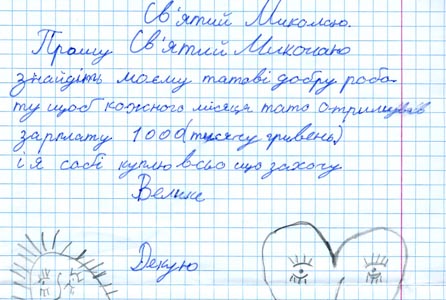 Св'ятий Миколаю.
Прошу Св'ятий Миколаю
знайдіть моєму татові добру робо-
ту щоб кожного місяця тато отримував
зарплату 1000 (тисячу гривень)
і я собі куплю всьо що захочу
Велике
Декую